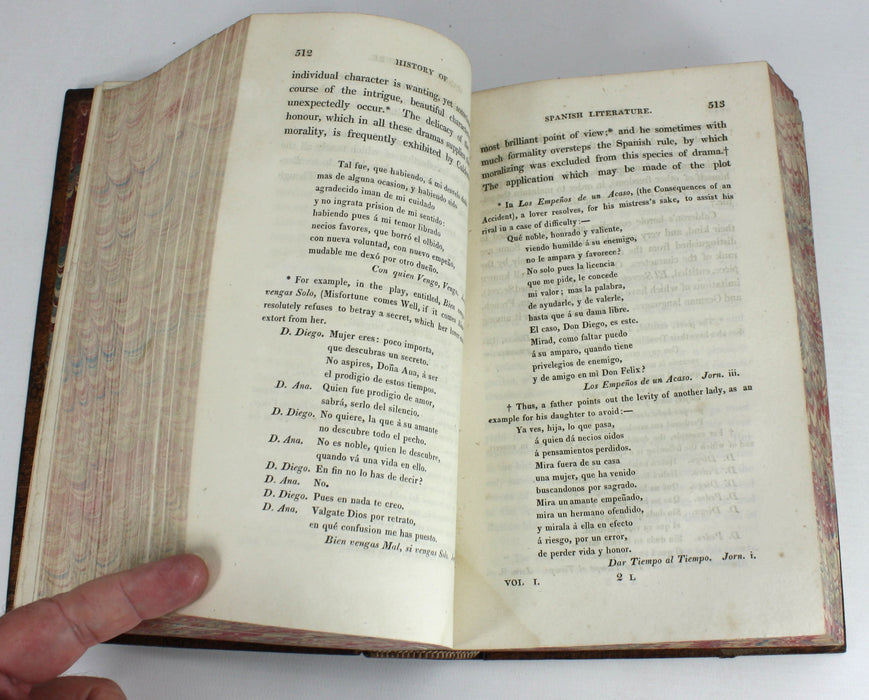 512
HISTORY OF
individual character is wanting, yet
course of the intrigue, beautiful
unexpectedly occur.* The delicacy of
honour, which in all these dramas supplies
morality, is frequently exhibited by
Tal fue, que habiendo, á mi
mas de alguna ocasion, y habiendo sido
agradecido iman de mi cuidado
y no ingrata prision de mi sentido:
habiendo pues á mi temor librado
necios favores, que borró el olbido,
con nueva voluntad, con nuevo empeño,
mudable me dexó por otro dueño.
Con quien Vengo, Vengo.
* For example, in the play, entitled, Bien
vengas Solo, (Misfortune comes Well, if it comes
resolutely refuses to betray a secret, which her
extort from her.
D. Diego. Mujer eres: poco importa,
que descubras un secreto.
No aspires, Doña Ana, á ser
el prodigio de estos tiempos.
D. Ana. Quien fue prodigio de amor,
sabrá, serlo del silencio.
D. Diego. No quiere, la que á su amante
no descubre todo el pecho.
D. Ana. No es noble, quien le descubre,
quando vá una vida en ello.
D. Diego. En fin no lo has de decir?
D. Ana. No.
D. Diego. Pues en nada te creo.
D. Ana. Valgate Dios por retrato,
en qué confusion me has puesto.
Bien vengas Mal, si vengas Solo.
SPANISH LITERATURE. 513
most brilliant point of view;* and he sometimes with
much formality oversteps the Spanish rule, by which
moralizing was excluded from this species of drama.†
The application which may be made of the plot
* In Los Empeños de un Acaso, (the Consequences of an
Accident), a lover resolves, for his mistress's sake, to assist his
rival in a case of difficulty:—
Qué noble, honrado y valiente,
viendo humilde á su enemigo,
no le ampara y favorece?
No solo pues la licencia
que me pide, le concede
mi valor; mas la palabra,
de ayudarle, y de valerle,
hasta que á su dama libre.
El caso, Don Diego, es este.
Mirad, como faltar puedo
á su amparo, quando tiene
privelegios de enemigo,
y de amigo en mi Don Felix?
Los Empeños de un Acaso. Jorn. iii.
† Thus, a father points out the levity of another lady, as an
example for his daughter to avoid:—
Ya ves, hija, lo que pasa,
á quien dá necios oidos
á pensamientos perdidos.
Mira fuera de su casa
una mujer, que ha venido
buscandonos por sagrado.
Mira un amante empeñado,
mira un hermano ofendido,
y mirala á ella en efecto
á riesgo, por un error,
de perder vida y honor.
Dar Tiempo al Tiempo. Jorn. i.
VOL. I. 2 L